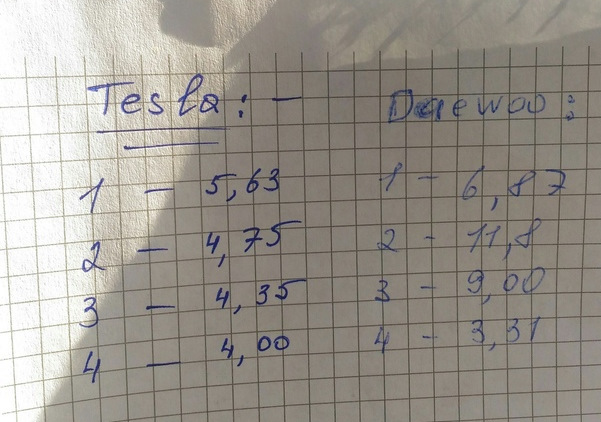 Tesla: -
1 - 5,63
2 - 4,75
3 - 4,35
4 - 4,00
Daewoo:
1 - 6,87
2 - 11,8
3 - 9,00
4 - 3,31